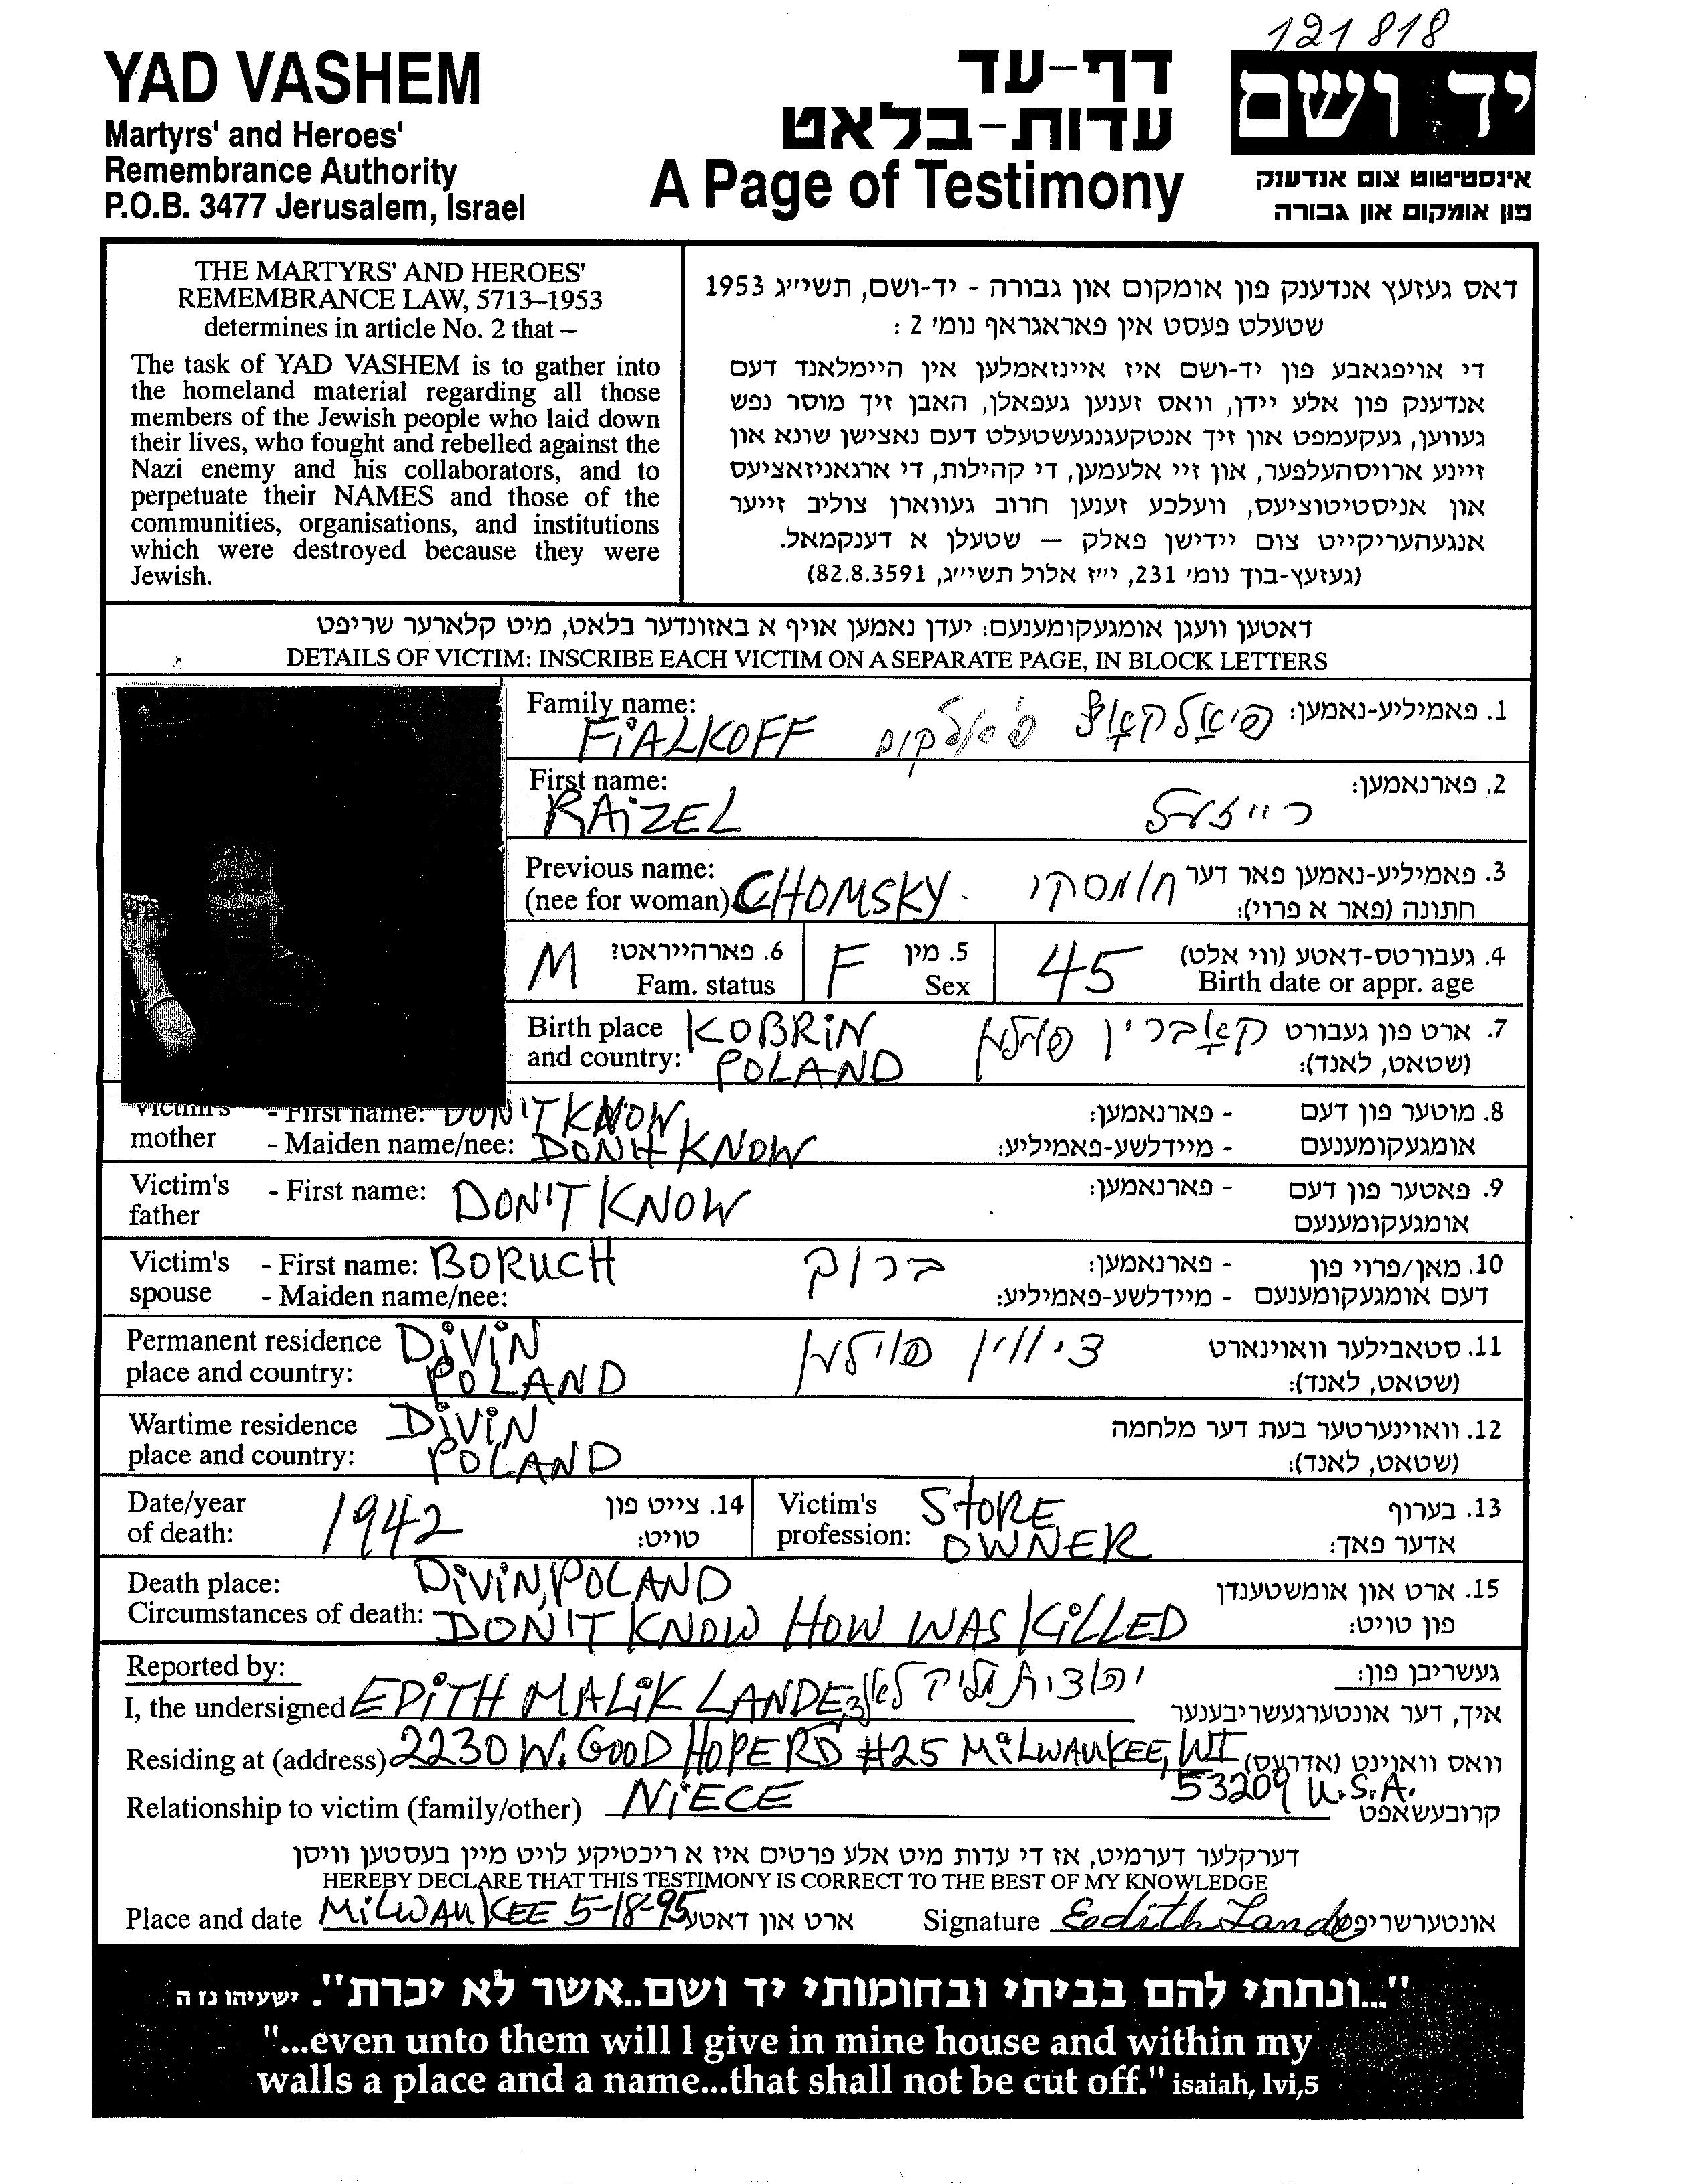 121818
YAD VASHEM
Martyrs' and Heroes'
Remembrance Authority
P.O.B. 3477 Jerusalem, Israel
דף-עד
עדות-בלאט
A Page of Testimony
יד ושם
אינסטיטוט צום אנדענק
פון אומקום און גבורה
THE MARTYRS' AND HEROES'
REMEMBRANCE LAW, 5713–1953
determines in article No. 2 that –
The task of YAD VASHEM is to gather into
the homeland material regarding all those
members of the Jewish people who laid down
their lives, who fought and rebelled against the
Nazi enemy and his collaborators, and to
perpetuate their NAMES and those of the
communities, organisations, and institutions
which were destroyed because they were
Jewish.
דאס געזעץ אנדענק פון אומקום און גבורה - יד-ושם, תשי״ג 1953
שטעלט פעסט אין פאראגראף נומ׳ 2 :
די אויפגאבע פון יד-ושם איז איינזאמלען אין היימלאנד דעם
אנדענק פון אלע יידן, וואס זענען געפאלן, האבן זיך מוסר נפש
געווען, געקעמפט און זיך אנטקעגנגעשטעלט דעם נאצישן שונא און
זיינע ארויסהעלפער, און זיי אלעמען, די קהילות, די ארגאניזאציעס
און אניסטיטוציעס, וועלכע זענען חרוב געווארן צוליב זייער
אנגעהעריקייט צום יידישן פאלק — שטעלן א דענקמאל.
(געזעץ-בוך נומ׳ 231, י״ז אלול תשי״ג, 82.8.3591)
דאטען וועגן אומגעקומענעם: יעדן נאמען אויף א באזונדער בלאט, מיט קלארער שריפט
DETAILS OF VICTIM: INSCRIBE EACH VICTIM ON A SEPARATE PAGE, IN BLOCK LETTERS
Family name: FIALKOFF פיאלקוב פיאלקאוו 1. פאמיליע-נאמען:
First name: RAIZEL רייזעל 2. פארנאמען:
Previous name: 3. פאמיליע-נאמען פאר דער
(nee for woman) CHOMSKY חאמסקי חתונה (פאר א פרוי):
M 6. פארהייראט? F 5. מין 45 4. געבורטס-דאטע (ווי אלט)
Fam. status Sex Birth date or appr. age
Birth place KOBRIN קאברין פוילען 7. ארט פון געבורט
and country: POLAND (שטאט, לאנד):
Victim's - First name: DON'T KNOW - פארנאמען: 8. מוטער פון דעם
mother - Maiden name/nee: DON'T KNOW - מיידלשע-פאמיליע: אומגעקומענעם
Victim's - First name: DON'T KNOW - פארנאמען: 9. פאטער פון דעם
father אומגעקומענעם
Victim's - First name: BORUCH ברוך - פארנאמען: 10. מאן/פרוי פון
spouse - Maiden name/nee: - מיידלשע-פאמיליע: דעם אומגעקומענעם
Permanent residence DIVIN דיווין פוילען 11. סטאבילער וואוינארט
place and country: POLAND (שטאט, לאנד):
Wartime residence DIVIN 12. וואוינערטער בעת דער מלחמה
place and country: POLAND (שטאט, לאנד):
Date/year 1942 14. צייט פון Victim's STORE 13. בערוף
of death: טויט: profession: OWNER אדער פאך:
Death place: DIVIN, POLAND 15. ארט און אומשטענדן
Circumstances of death: DON'T KNOW HOW WAS KILLED פון טויט:
Reported by: געשריבן פון:
I, the undersigned EDITH MALIK LANDE יהודית מליק איך, דער אונטערגעשריבענער
Residing at (address) 2230 W. GOOD HOPE RD #25 MILWAUKEE, WI וואס וואוינט (אדרעס)
53209 U.S.A.
Relationship to victim (family/other) NIECE קרובעשאפט
דערקלער דערמיט, אז די עדות מיט אלע פרטים איז א ריכטיקע לויט מיין בעסטען וויסן
HEREBY DECLARE THAT THIS TESTIMONY IS CORRECT TO THE BEST OF MY KNOWLEDGE
Place and date MILWAUKEE 5-18-95 ארט און דאטע Signature Eedith Lande אונטערשריפט
"...ונתתי להם בביתי ובחומותי יד ושם..אשר לא יכרת". ישעיהו נז ה
"...even unto them will I give in mine house and within my
walls a place and a name...that shall not be cut off." isaiah, lvi,5